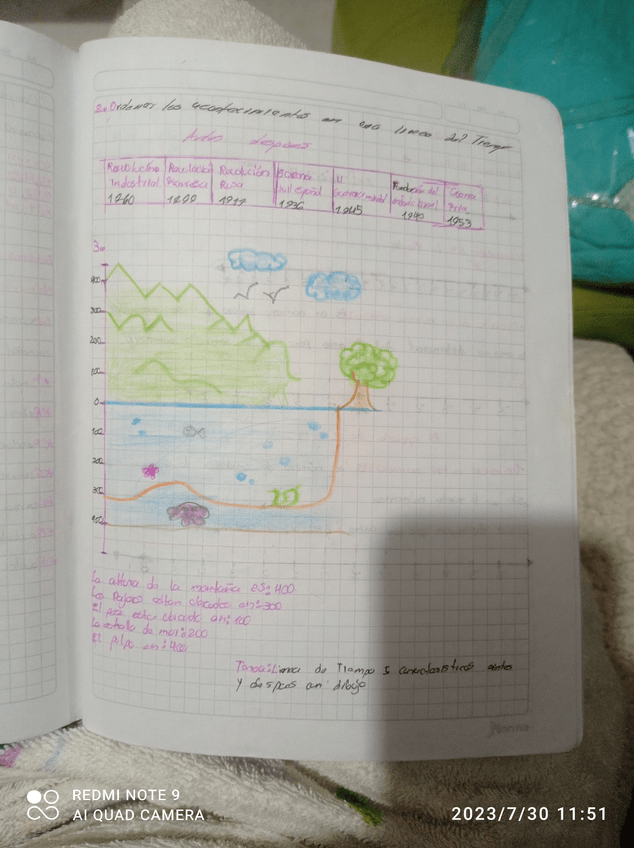 2. Ordenar los acontecimientos en una linea del Tiemp
Antes despues
Revolucion Industrial 1760
Revolucion Francesa
Revolución Rusa 1917
Guerra civil español 1936
II Guerra mundial 1945
1940
Guerra 1953
3.
400
300
200
100
0
100
200
300
400
La altura de la montaña es: 400
Los Pajaros estan ubicados en: 300
El pez esta ubicado en: 100
La estrella de mar: 200
El pulpo en: 400
Tarea: Linea de Tiempo 5 caracteristicas antes
y despues un dibujo
Norma
REDMI NOTE 9
AI QUAD CAMERA
2023/7/30 11:51